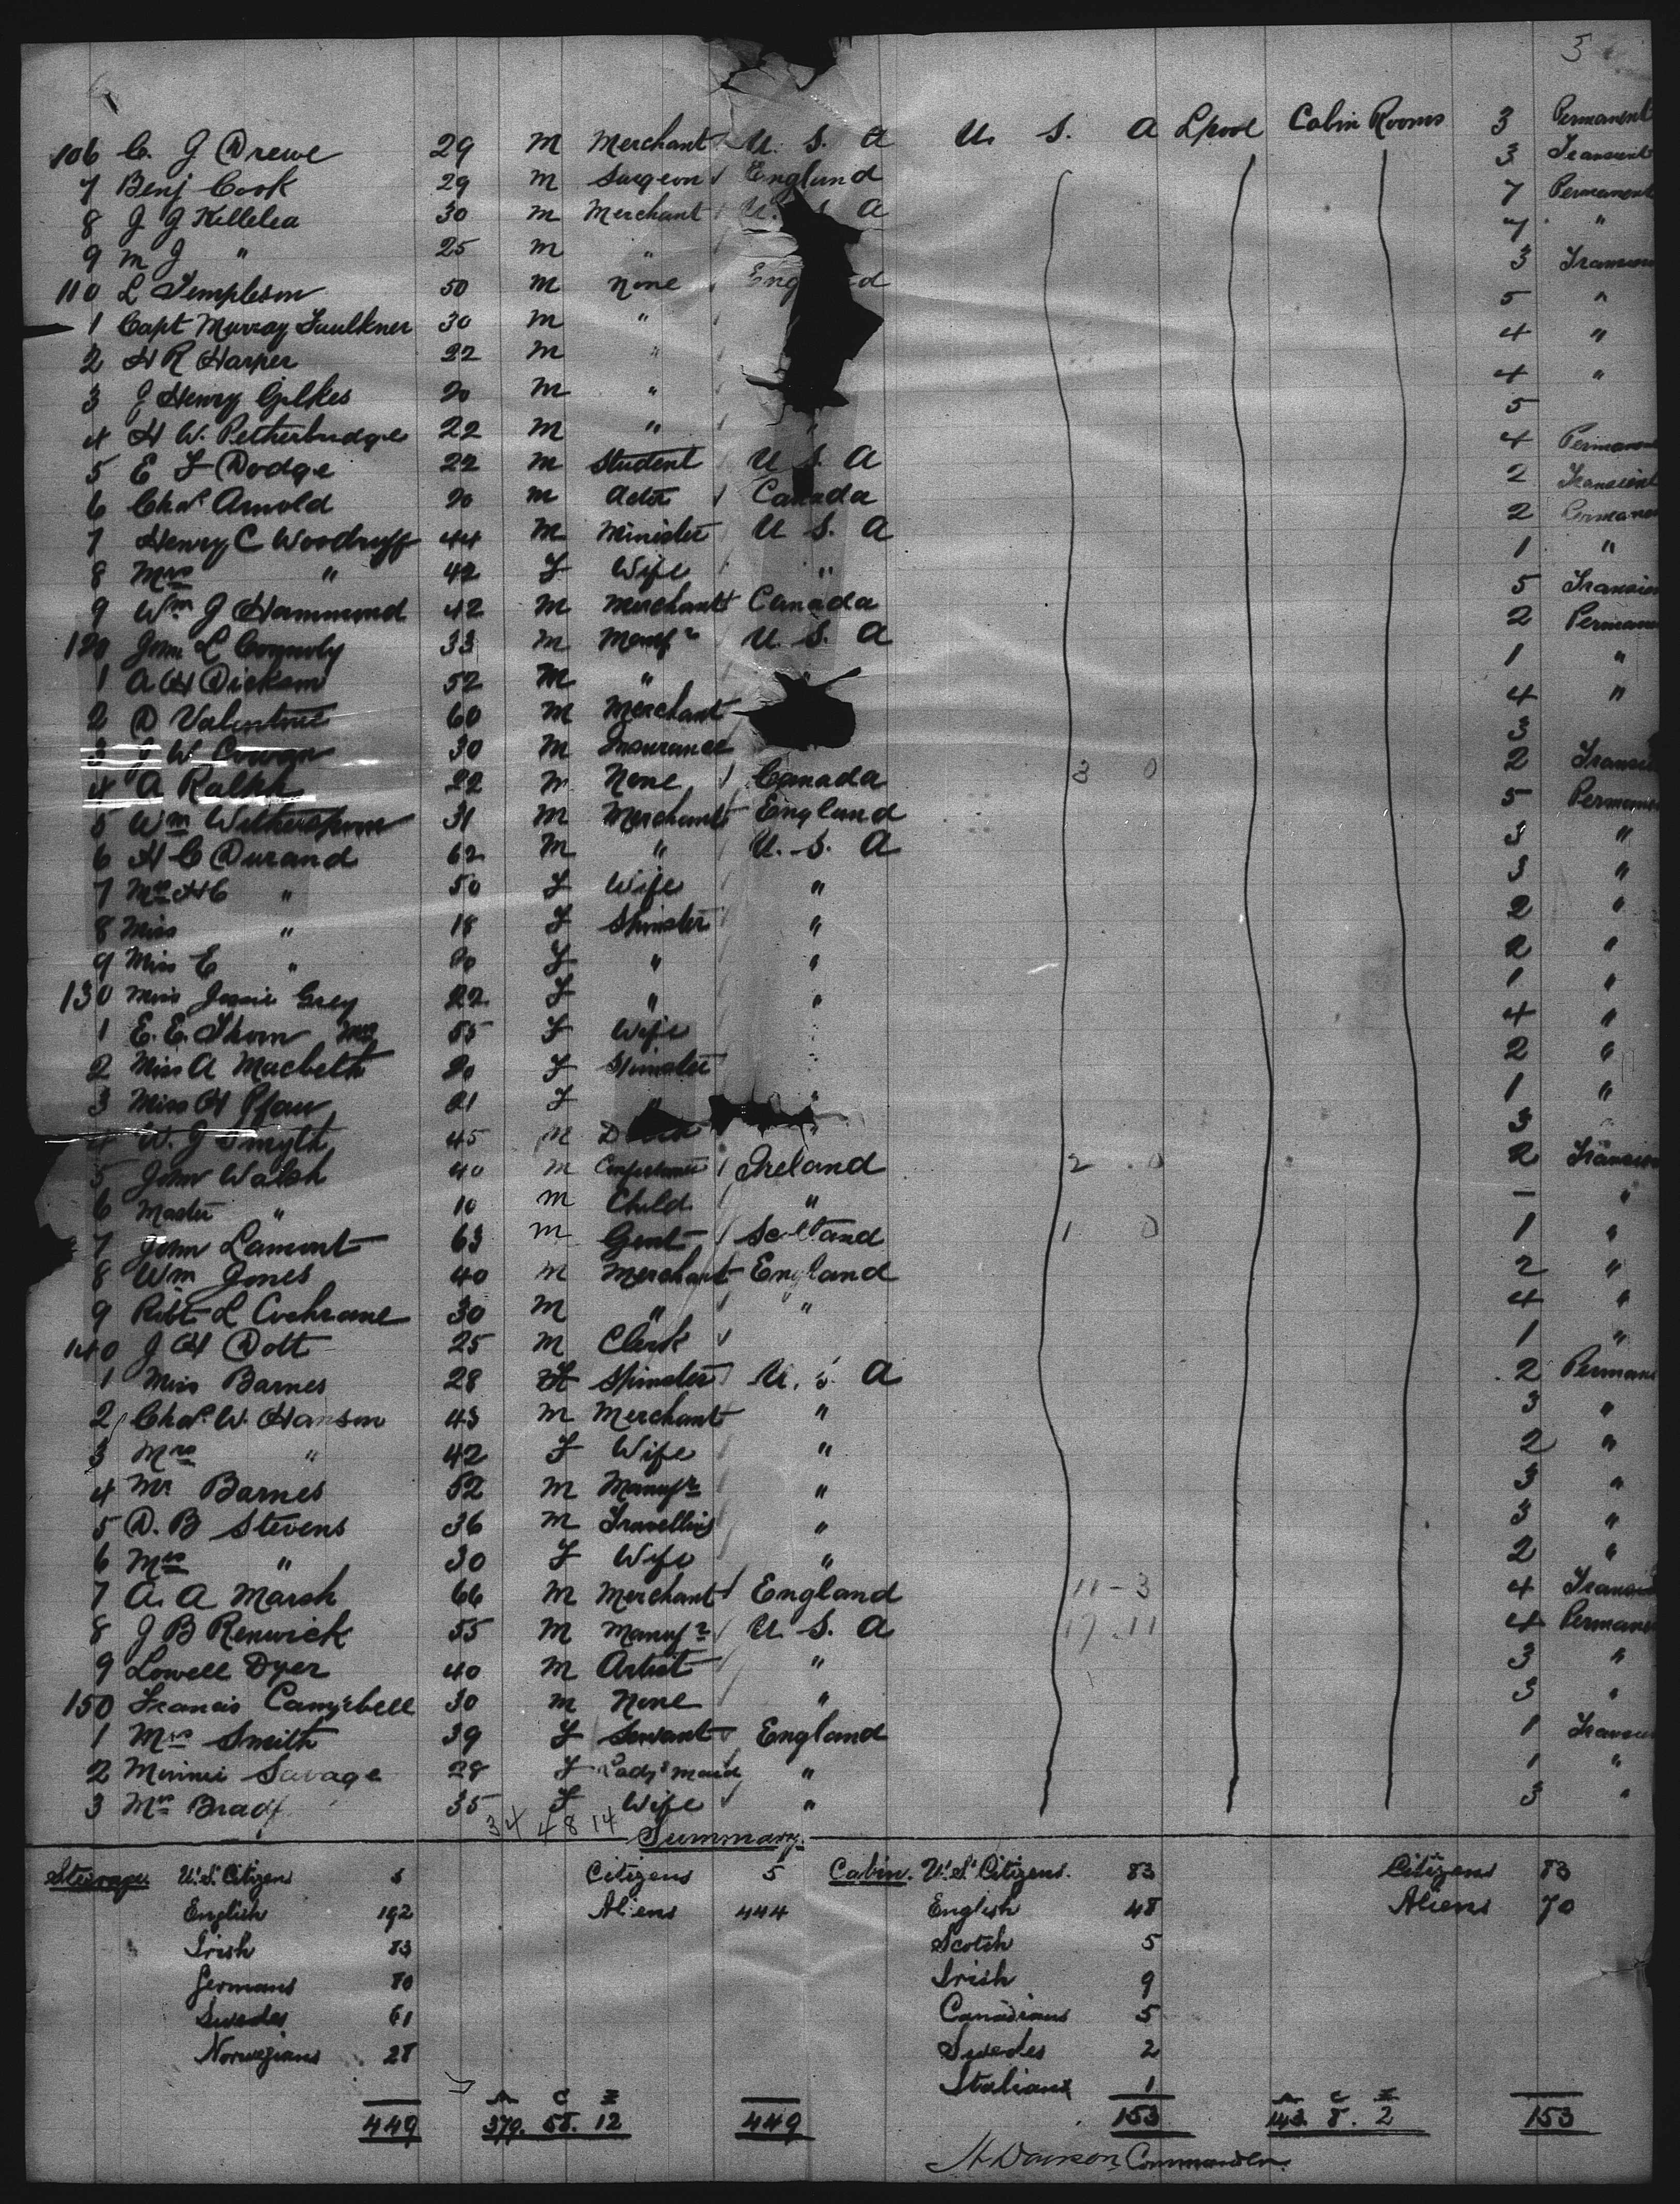 5
106 C. J Drewe 29 M Merchant U. S. A U. S. A Lpool Cabin Rooms 3 Permanent
7 Benj Cook 29 M Surgeon England 3 Transient
8 J J Killelea 30 M Merchant U. S A 7 Permanent
9 M J " 25 M " 7 "
110 L Templeson 50 M None Eng d 3 Transien
1 Capt Murray Faulkner 30 M " 5 "
2 H R Harper 22 M " 4 "
3 J Henry Gilkes 20 M " 4 "
4 H W. Petherbridge 22 M " " 5
5 E F Dodge 22 M Student U S. A 4 Permanen
6 Chas Arnold 20 M Actor Canada 2 Transient
7 Henry C Woodruff 44 M Minister U S. A 2 Permanen
8 Mrs " 42 F Wife " 1 "
9 Wm J Hammond 42 M Merchant Canada 5 Transien
120 John L Connoly 33 M Manfr U. S. A 2 Perman
1 A H Dickson 52 M " 1 "
2 D Valentine 60 M Merchant 4 "
3 J W Cowan 30 M Insurance 3
4 A Ralph 22 M None Canada 3 0 2 Transi
5 Wm Witherspoon 31 M Merchant England 5 Permanen
6 H C Durand 62 M " U. S. A 3 "
7 Mrs H C " 50 F Wife " 3 "
8 Miss " 18 F Spinster " 2 "
9 Miss E " 20 F " " 2 "
130 Miss Jessie Grey 22 F " " 1 "
1 E. E. Thorn Mrs 55 F Wife 4 "
2 Miss A Macbeth 20 F Spinster 2 "
3 Miss H Pfau 21 F " 1 "
4 W. J Smyth 45 M " 3
5 John Walsh 40 M Ireland 2 0 2 Transien
6 Master " 10 M Child " – "
7 John Lamont 63 M Gent Scotland 1 0 1 "
8 Wm Jones 40 M Merchant England 2 "
9 Robt L Cochrane 30 M " " 4 "
140 J H Dott 25 M Clerk 1 "
1 Miss Barnes 28 F Spinster U. S. A 2 Perman
2 Chas. W. Hanson 43 M Merchant " 3 "
3 Mrs " 42 F Wife " 2 "
4 Mr Barnes 52 M Manufr " 3 "
5 D. B Stevens 36 M Travelling " 3 "
6 Mrs " 30 F Wife " 2 "
7 A. A Marsh 66 M Merchant England 11 - 3 4 Transi
8 J B Renwick 55 M Manufr U S. A 17 . 11 4 Permane
9 Lowell Dyer 40 M Artist " 3 "
150 Francis Campbell 30 M None " 3 "
1 Mrs Smith 39 F Servant England 1 Transi
2 Minnie Savage 28 F Lady's maid " 1 "
3 Mrs Brady 35 F Wife " 3 "
34 48 14 Summary.
Steerage. U.S. Citizens 5 Citizens 5 Cabin. U.S. Citizens. 83 Citizens 83
English 192 Aliens 444 English 48 Aliens 70
Irish 83 Scotch 5
Germans 80 Irish 9
Swedes 61 Canadians 5
Norwegians 28 Swedes 2
Italians 1
A C I A C I
449 379. 58. 12 449 153 143. 8. 2 153
H Dawson, Commander.